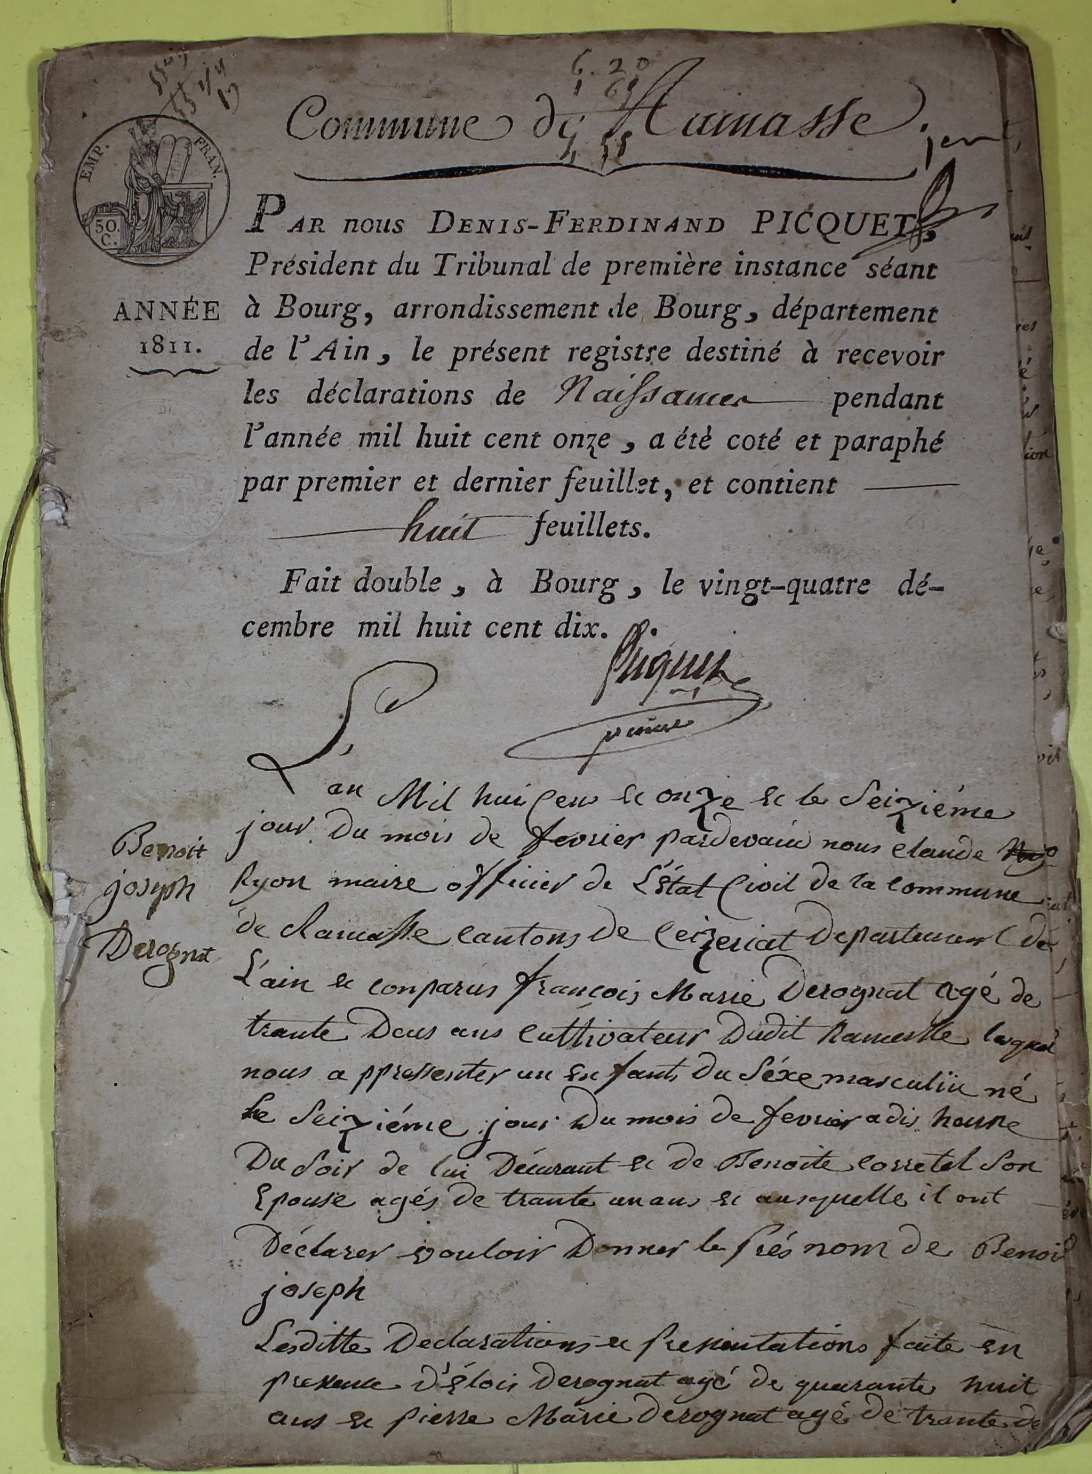 6. 20
Commune de Ramasse.
1er
EMP. FRAN.
50.
C.
ANNÉE
1811.
PAR nous DENIS-FERDINAND PICQUET,
Président du Tribunal de première instance séant
à Bourg, arrondissement de Bourg, département
de l'Ain, le présent registre destiné à recevoir
les déclarations de Naissances pendant
l'année mil huit cent onze, a été coté et paraphé
par premier et dernier feuillet, et contient
huit feuillets.
Fait double, à Bourg, le vingt-quatre dé-
cembre mil huit cent dix.
Picquet
Benoit
joseph
Derognat
L'an Mil huit Cens et onze et le Seiziéme
jour Du mois de fevrier pardevant nous claude
Ryon maire officier de L'État Civil de la commune
de Ramasse cantons de Ceizeriat Departement de
L'ain et conparus françois Marie Derognat agé de
trante Deus ans Cultivateur Dudit Ramasse lequel
nous a ppressenter un enfants du Séxe masculin né
Le Seiziéme jour Du mois de fevrier a dis heure
Du Soir de lui Décarant et de Benoite corretel Son
Epouse agés de trante un ans et ausquelle il ont
Déclarer vouloir Donner le Prés nom de Benoit
joseph
Lesditte Declarations et presentations faite en
presence d'Élois Derognat agé de quarante huit
ans et pierre Marie derognat agé de trante de